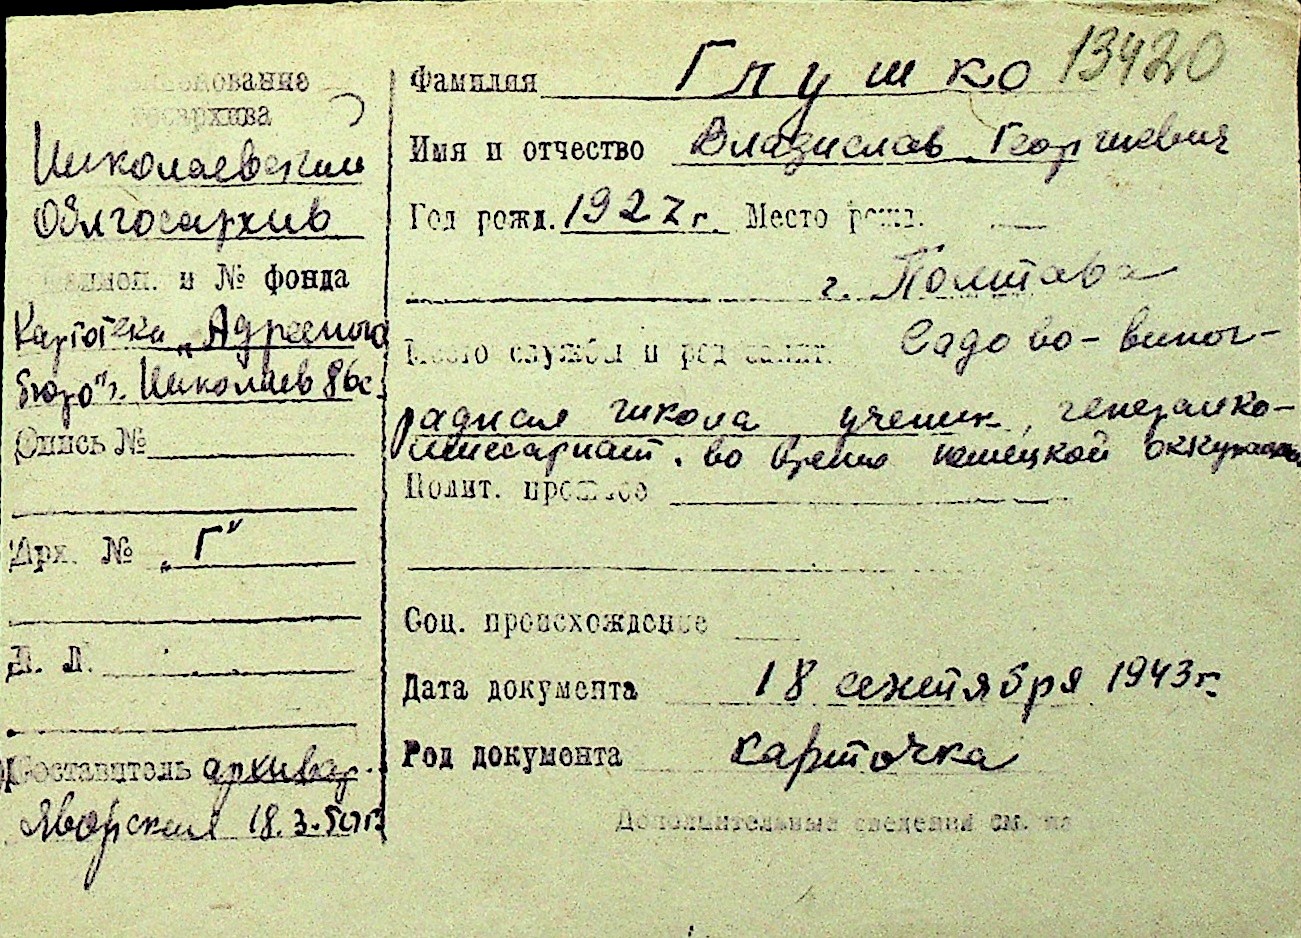 наименование
госархива
Николаевский
Облгосархив
Наимен. и № фонда
Картотека „Адресного
бюро" г. Николаев 86с.
Опись №
Арх. № „Г"
Л. Л.
Составитель архивар.
Яворская 18.3.50г.
13420
Фамилия Глушко
Имя и отчество Владислав Георгиевич
Год рожд. 1927г. Место рожд.
г. Полтава
Место службы и род занят. Садово-виног-
радная школа ученик, генералко-
миссариат. во время немецкой оккупации
Полит. прошлое
Соц. происхождение
Дата документа 18 сентября 1943г.
Род документа карточка
Дополнительные сведения см. на